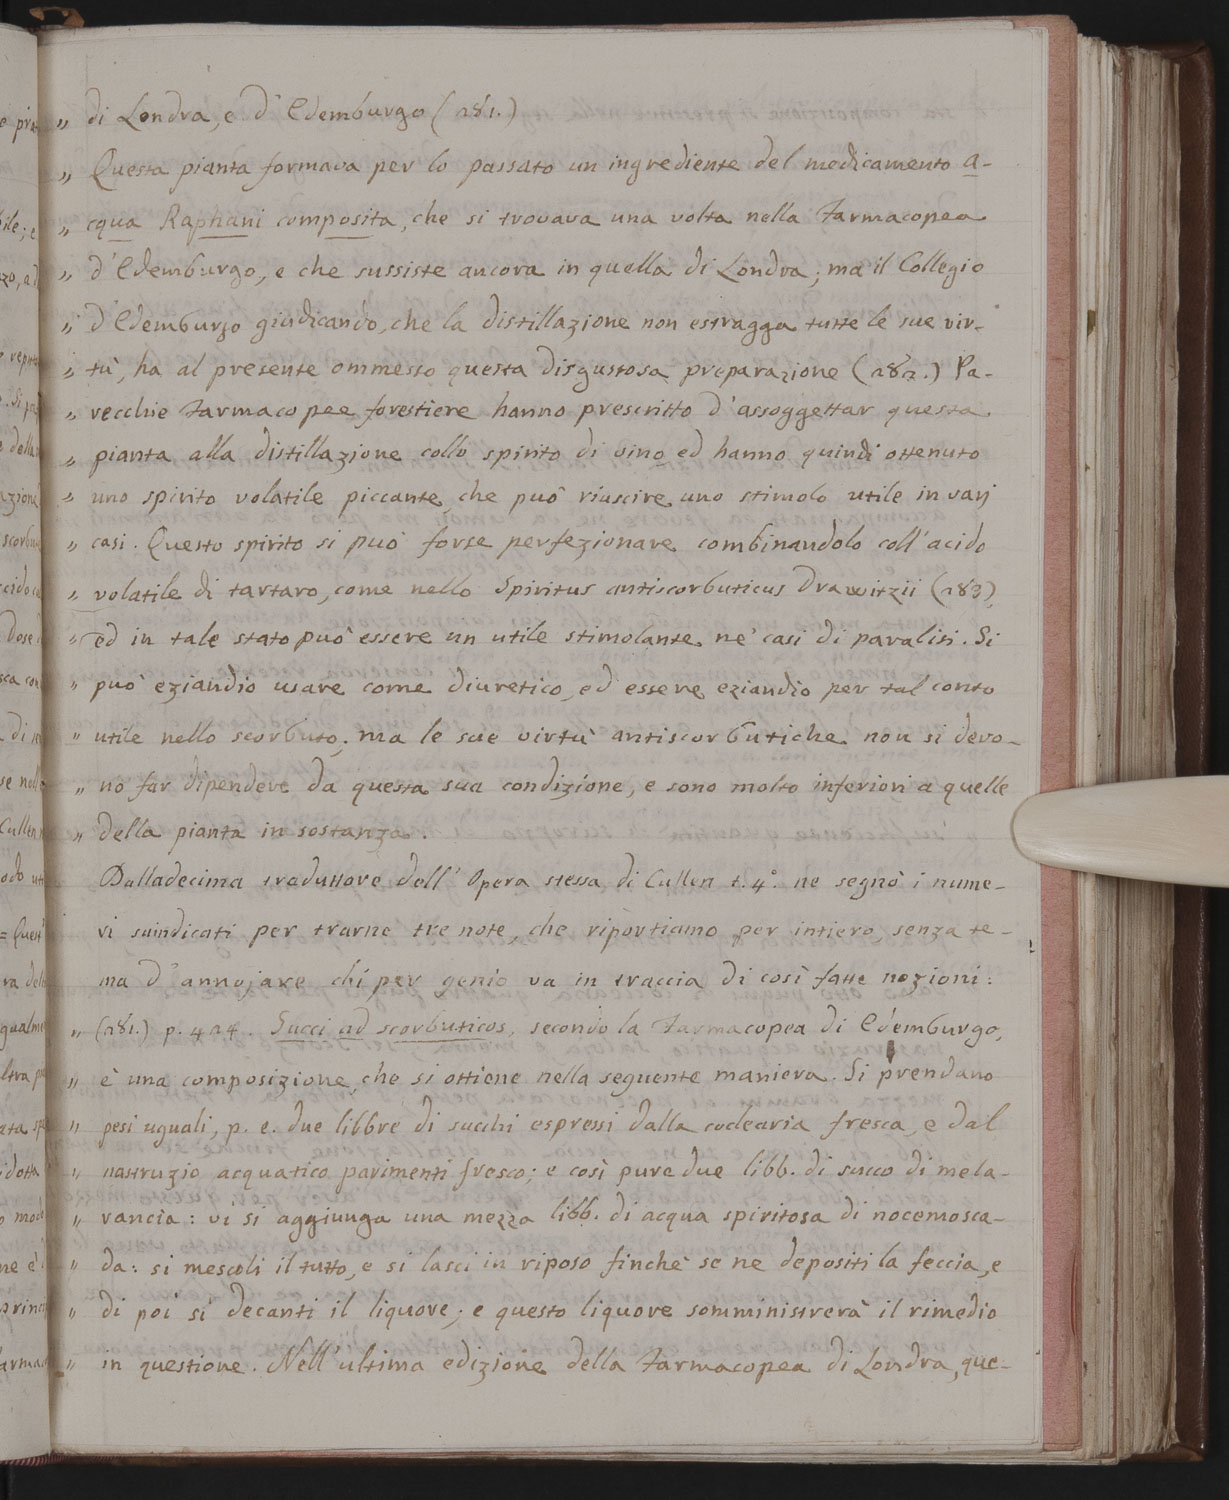 „ di Londra, e d' Edemburgo (281.)
„ Questa pianta formava per lo passato un ingrediente del medicamento a-
„ cqua Raphani composita, che si trovava una volta nella Farmacopea
„ d'Edemburgo, e che sussiste ancora in quella di Londra; ma il Collegio
„ d'Edemburgo giudicando, che la distillazione non estragga tutte le sue vir-
„ tù, ha al presente ommesso questa disgustosa preparazione (282.) Pa-
„ recchie Farmacopee forestiere hanno prescritto d'assoggettar questa
„ pianta alla distillazione collo spirito di vino ed hanno quindi ottenuto
„ uno spirito volatile piccante, che può riuscire uno stimolo utile in varj
„ casi. Questo spirito si può forse perfezionare combinandolo coll'acido
„ volatile di tartaro, come nello Spiritus antiscorbuticus Drawitzii (283),
„ ed in tale stato può essere un utile stimolante ne' casi di paralisi. Si
„ può eziandio usare come diuretico, ed essere eziandio per tal conto
„ utile nello scorbuto; ma le sue virtù antiscorbutiche non si devo-
„ no far dipendere da questa sua condizione, e sono molto inferiori a quelle
„ della pianta in sostanza.
Dalladecima traduttore dell' Opera stessa di Cullen t. 4°. ne segnò i nume-
ri suindicati per trarne tre note, che riportiamo per intiero, senza te-
ma d'annojare chi per genio va in traccia di così fatte nozioni:
„ (281.) p. 424. Succi ad scorbuticos, secondo la Farmacopea di Edemburgo,
„ è una composizione, che si ottiene nella seguente maniera. Si prendano
„ pesi uguali, p. e. due libbre di succhi espressi dalla coclearia fresca, e dal
„ nasturzio acquatico parimenti fresco; e così pure due libb. di succo di mela-
„ rancia: vi si aggiunga una mezza libb. di acqua spiritosa di nocemosca-
„ da: si mescoli il tutto, e si lasci in riposo finchè se ne depositi la feccia, e
„ di poi si decanti il liquore; e questo liquore somministrerà il rimedio
„ in questione. Nell'ultima edizione della Farmacopea di Londra, que-